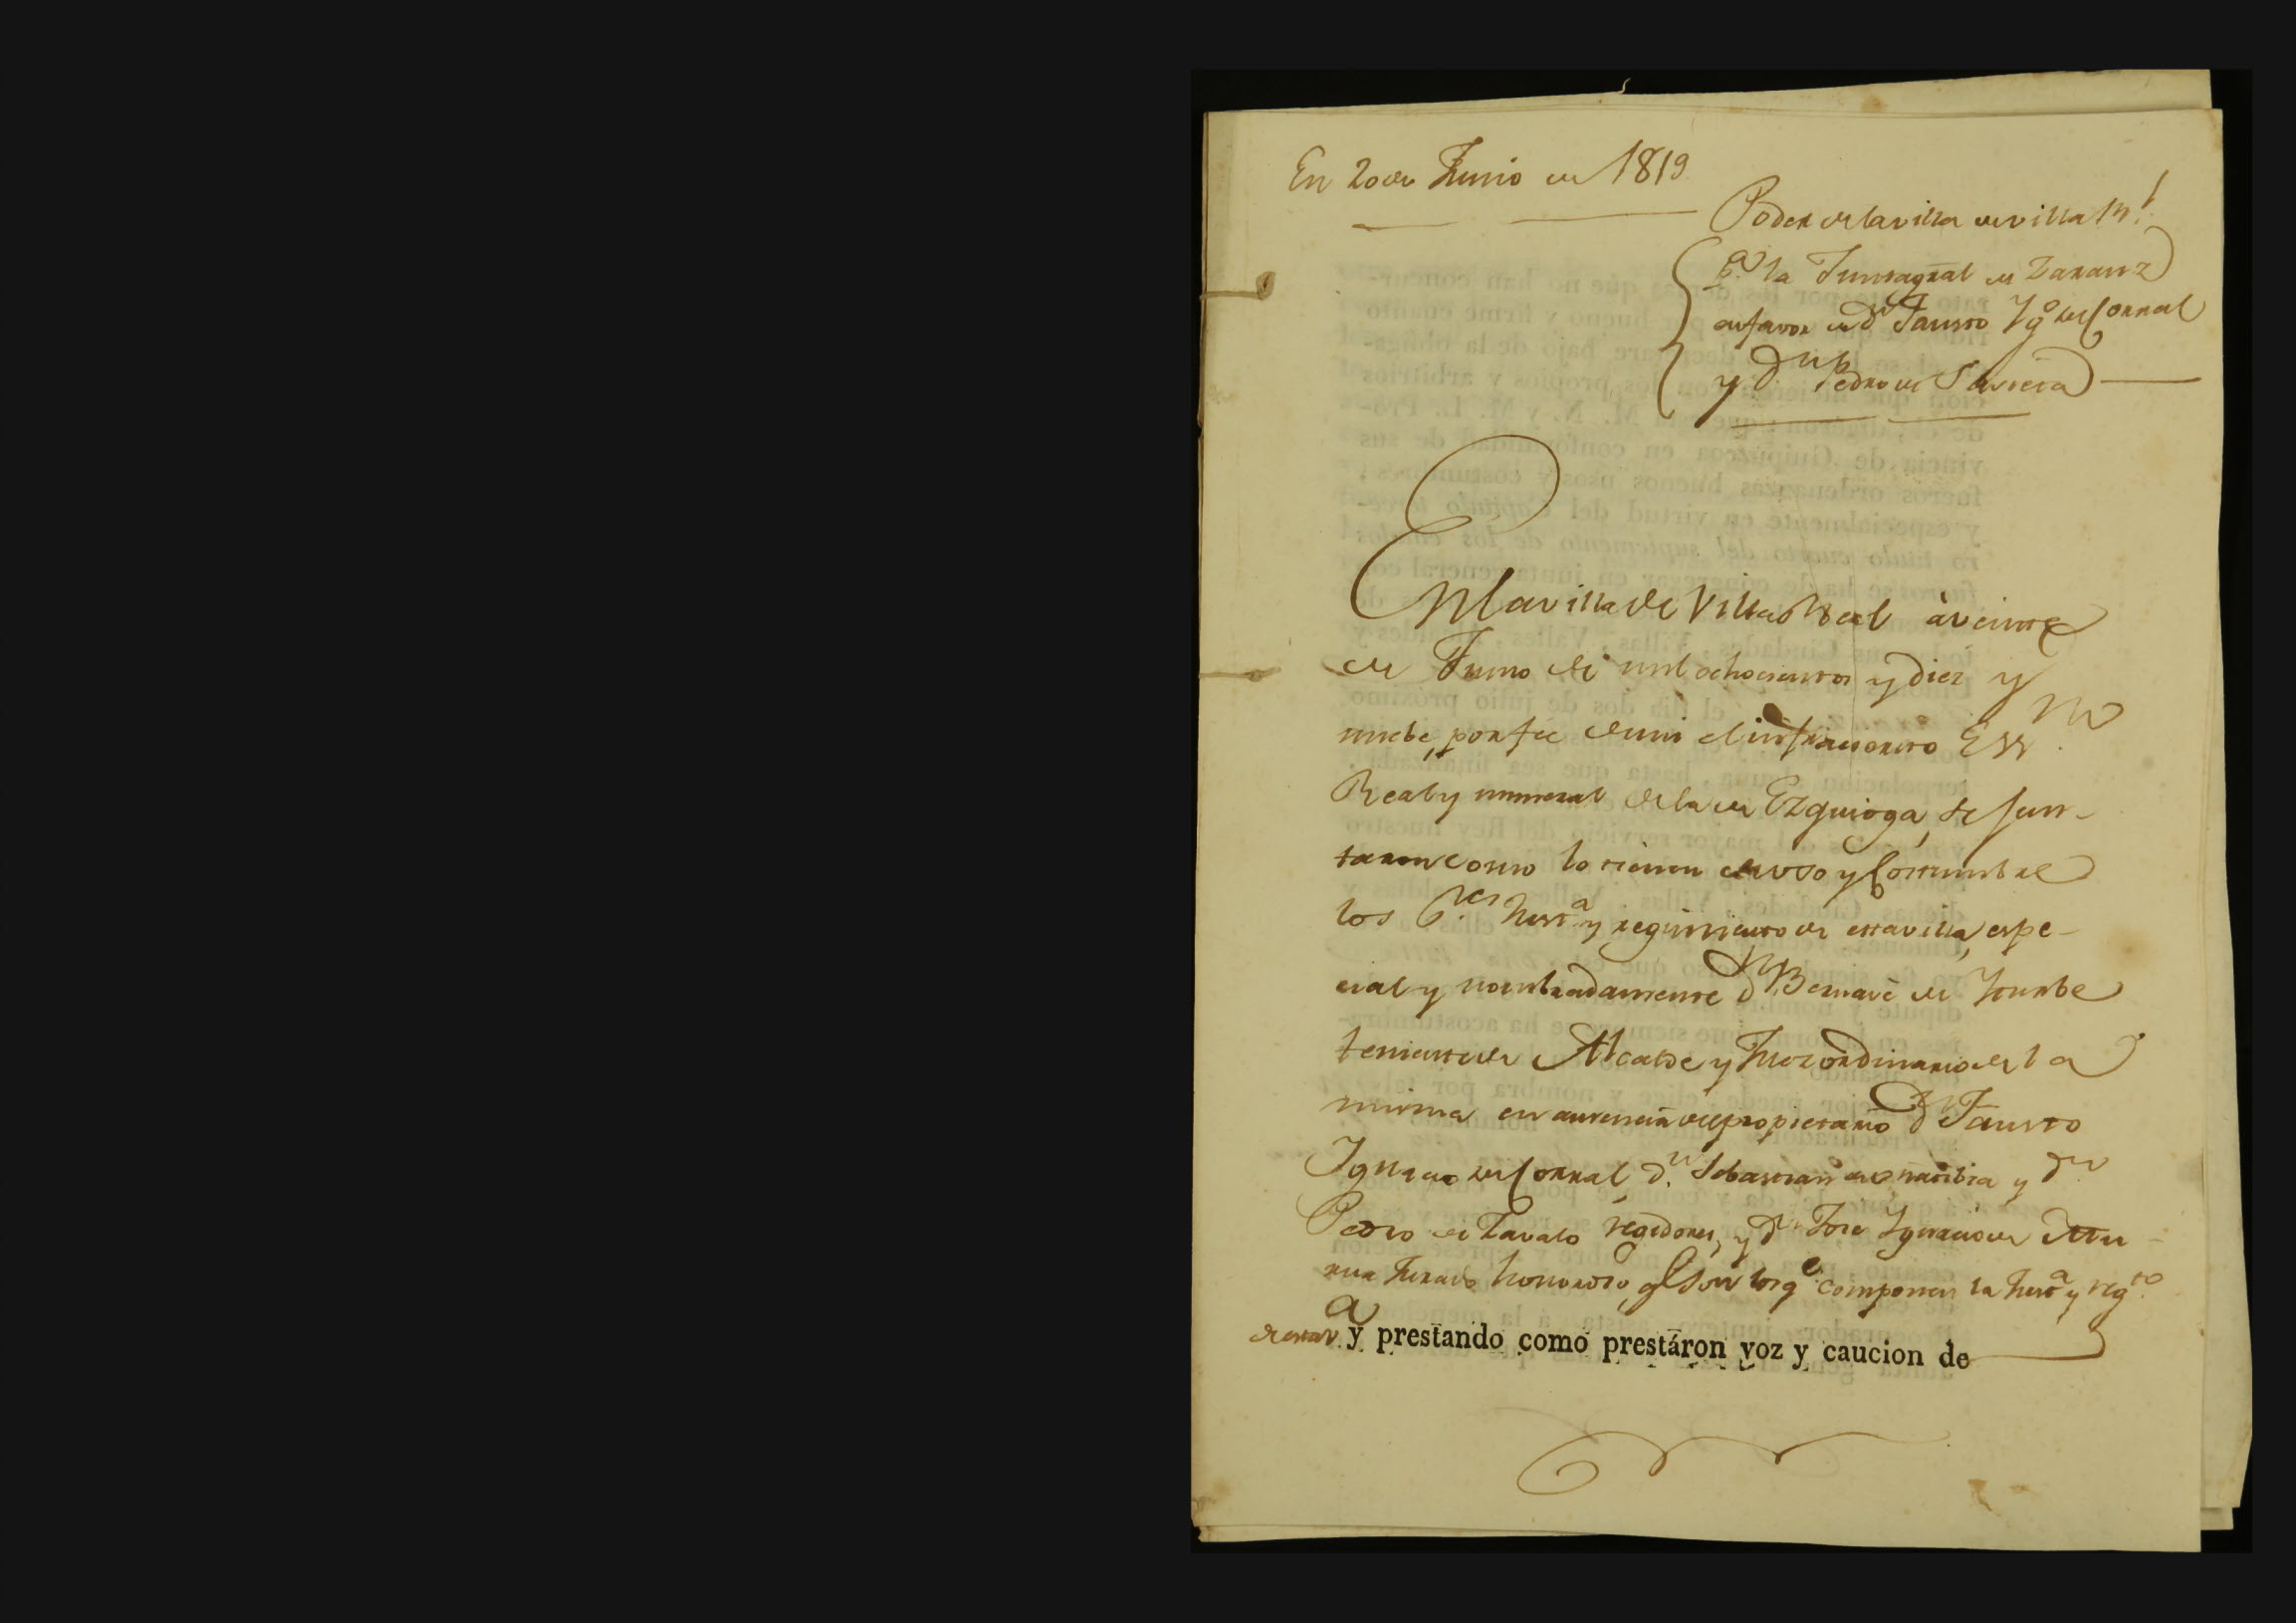 En 20 de Junio de 1819
Poder de la villa de villa Rl.
pa. la Junta gral de Zarauz
en favor de Dn Fausto Ygo. del Corral
y Dn Pedro de
En la villa de Villa Real à veinte
de Junio de mil ochocientos y diez y
nuebe, por fee de mi el infraescrito Essno.
Real y numeral de la de Ezquioga, se jun-
taron como lo tienen de uso y Costumbre
los Sres. Justa. y regimiento de esta villa, espe-
cial y nombradamente Dn Bernavè de Yturbe
teniente de Alcalde y Juez ordinario de la
misma en ausencia del propietario Dn Fausto
Ygnacio del Corral, Dn. Sebastian de y Dn
Pedro de Zavalo regidores, y Dn Jose Ygnacio de Mu-
rua Jurado honoroso, qe son los qe componen la Justa. y regto.
de esta va y prestando como prestáron voz y caucion de